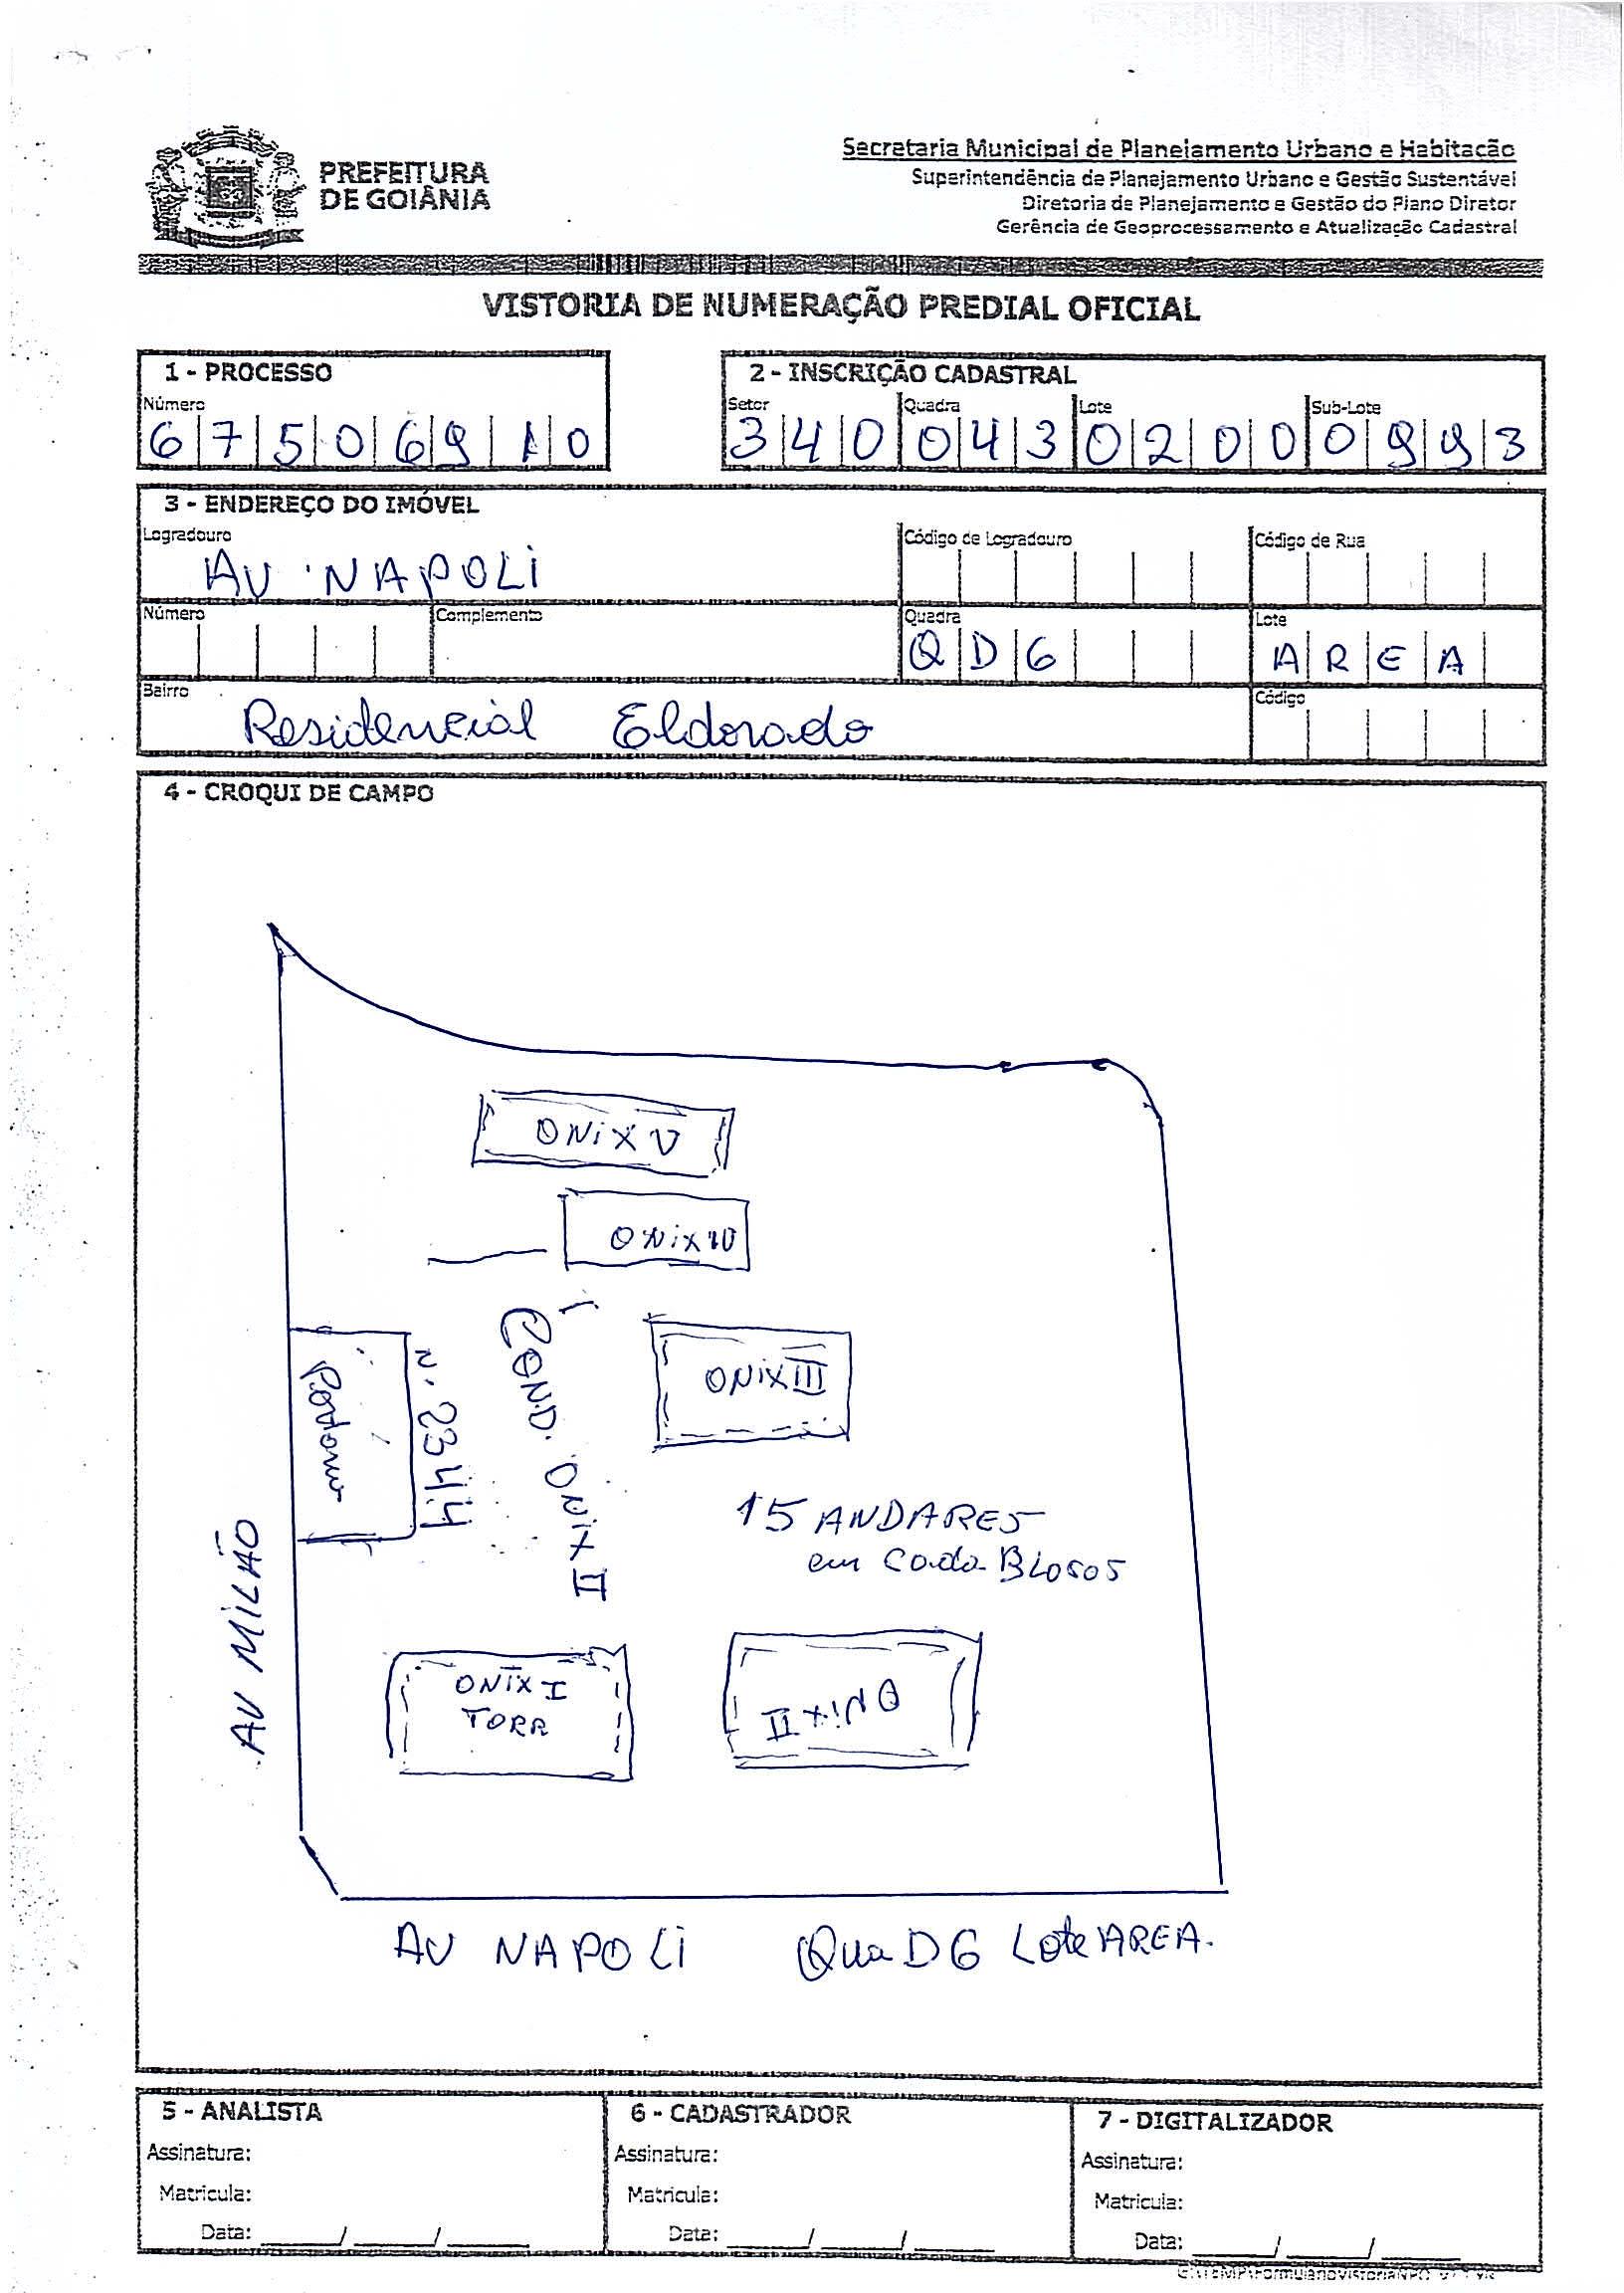 PREFEITURA
DE GOIÂNIA
Secretaria Municipal de Planejamento Urbano e Habitação
Superintendência de Planejamento Urbano e Gestão Sustentável
Diretoria de Planejamento e Gestão do Plano Diretor
Gerência de Geoprocessamento e Atualização Cadastral
VISTORIA DE NUMERAÇÃO PREDIAL OFICIAL
1 - PROCESSO
Número
6 7 5 0 6 9 1 0
2 - INSCRIÇÃO CADASTRAL
Setor Quadra Lote Sub-Lote
3 4 0 0 4 3 0 2 0 0 0 9 9 3
3 - ENDEREÇO DO IMÓVEL
Logradouro Código de Logradouro Código de Rua
AV NAPOLI
Número Complemento Quadra Lote
Q D 6 A R E A
Bairro Código
Residencial Eldorado
4 - CROQUI DE CAMPO
ONIX V
ONIX IV
ONIX III
N. 2344
COND. ONIX II
15 ANDARES
em cada BLOCOS
AV MILÃO
ONIX I
TORR
II XINO
AV NAPOLI QuaD6 Lote AREA.
5 - ANALISTA
Assinatura:
Matrícula:
Data: ____/____/____
6 - CADASTRADOR
Assinatura:
Matrícula:
Data: ____/____/____
7 - DIGITALIZADOR
Assinatura:
Matrícula:
Data: ____/____/____